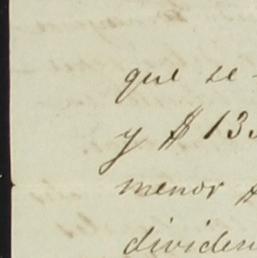 que se
y $ 133
menor $
dividen